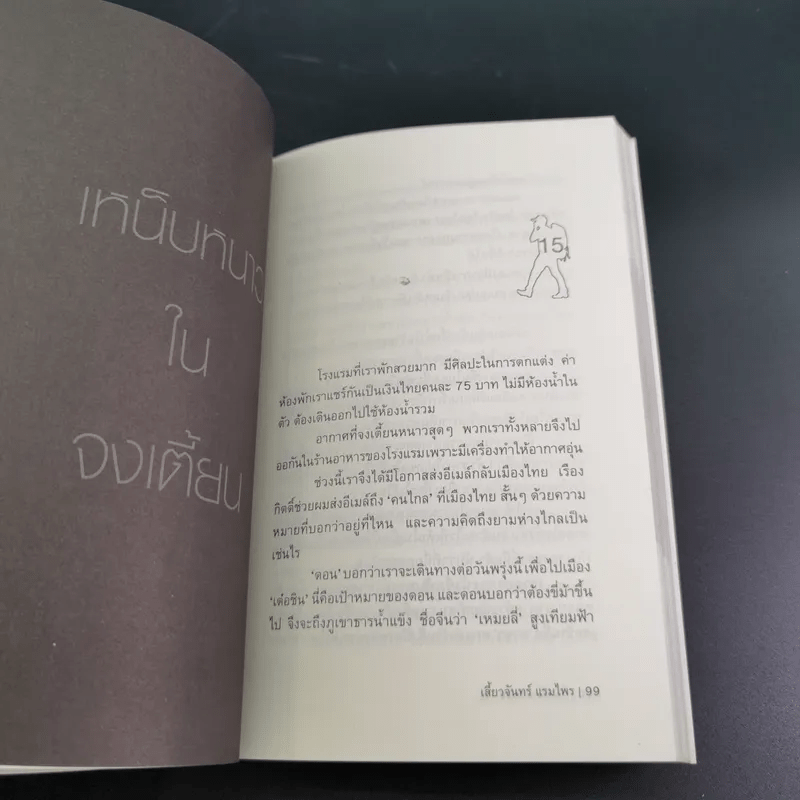 เหน็บหนาว
ใน
จงเตี้ยน
15
โรงแรมที่เราพักสวยมาก มีศิลปะในการตกแต่ง ค่า
ห้องพักเราแชร์กันเป็นเงินไทยคนละ 75 บาท ไม่มีห้องน้ำใน
ตัว ต้องเดินออกไปใช้ห้องน้ำรวม
อากาศที่จงเตี้ยนหนาวสุดๆ พวกเราทั้งหลายจึงไป
ออกันในร้านอาหารของโรงแรมเพราะมีเครื่องทำให้อากาศอุ่น
ช่วงนี้เราจึงได้มีโอกาสส่งอีเมล์กลับเมืองไทย เรือง
กิตติ์ช่วยผมส่งอีเมล์ถึง ‘คนไกล’ ที่เมืองไทย สั้นๆ ด้วยความ
หมายที่บอกว่าอยู่ที่ไหน และความคิดถึงยามห่างไกลเป็น
เช่นไร
‘ดอน’ บอกว่าเราจะเดินทางต่อวันพรุ่งนี้ เพื่อไปเมือง
‘เต๋อชิน’ นี่คือเป้าหมายของดอน และดอนบอกว่าต้องขี่ม้าขึ้น
ไป จึงจะถึงภูเขาธารน้ำแข็ง ชื่อจีนว่า ‘เหมยลี่’ สูงเทียมฟ้า
เสี้ยวจันทร์ แรมไพร | 99